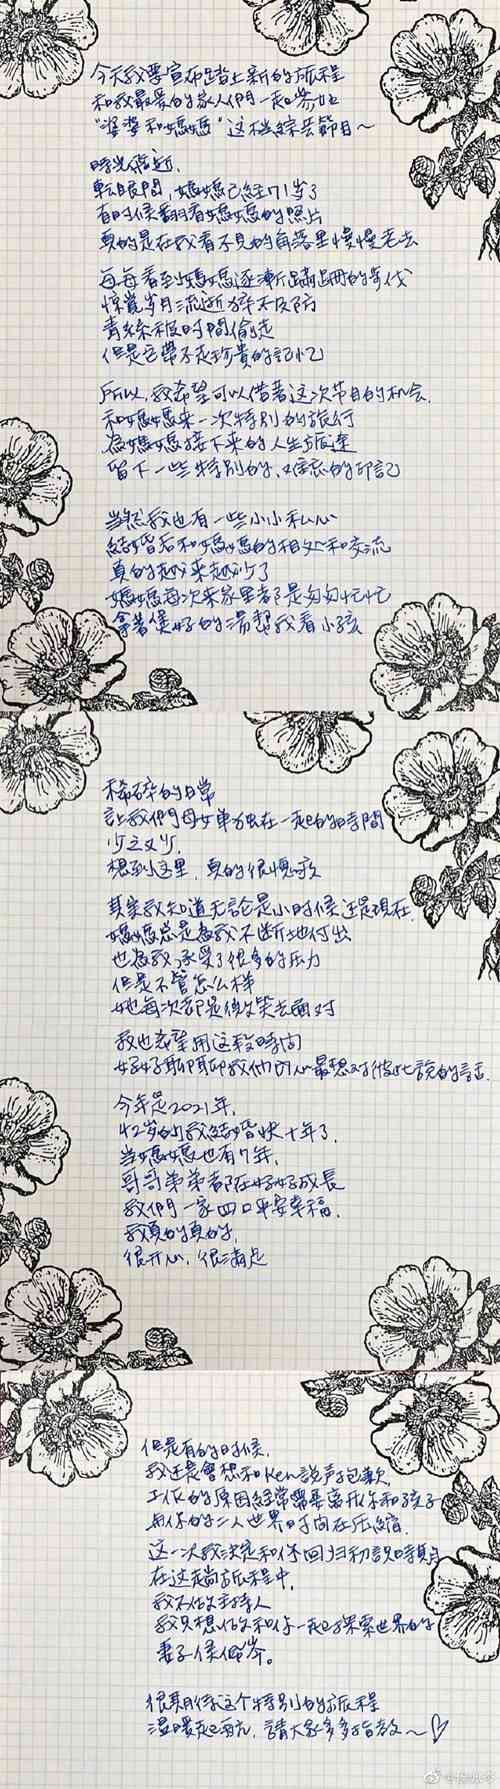 今天我要宣布踏上新的旅程
和我最爱的家人們一起参加
"婆婆和媽媽"这檔綜芸節目～
時光荏苒,
転眼間,媽媽已経71岁了
有时候翻看媽媽的照片
真的是在我看不見的角落里慢慢老去
每每看到媽媽逐漸蹒跚的步伐
惊覚岁月流逝猝不及防
青絲被時間偷走
但是它帶不走珍貴的記忆
所以,我希望可以借著这次节目的机会,
和媽媽来一次特别的旅行
為媽媽接下来的人生旅途
留下一些特别的,难忘的印記
当然我也有一些小小私心
結婚后和媽媽的相处和交流
真的越来越少了
媽媽每次来家里都是匆匆忙忙
拿着煲好的湯帮我看小孩
稀碎的日常
讓我們母女单独在一起的時間
少之又少,
想到这里,真的很愧疚
其实我知道无論是小时候还是現在,
媽媽总是為我不断地付出
也為我承受了很多的压力
但是不管怎么样
她每次都是微笑去面对
我也希望用这段時间
好好聊聊我们内心最想对彼此説的話.
今年是2021年,
42岁的我結婚快十年了,
当媽媽也有7年,
哥哥弟弟都在好好成長
我們一家四口平安幸福,
我真的真的,
很开心,很满足
但是有的时候,
我还是會想和Ken說声抱歉,
工作的原因経常需要离开你和孩子
与你的二人世界时间在压縮,
这一次我决定和你回归初識時真
在这趟旅程中,
我不做主持人
我只想做和你一起探索世界的
妻子侯佩岑。
很期待这个特别的旅程
温暖起航,請大家多多指教～♡